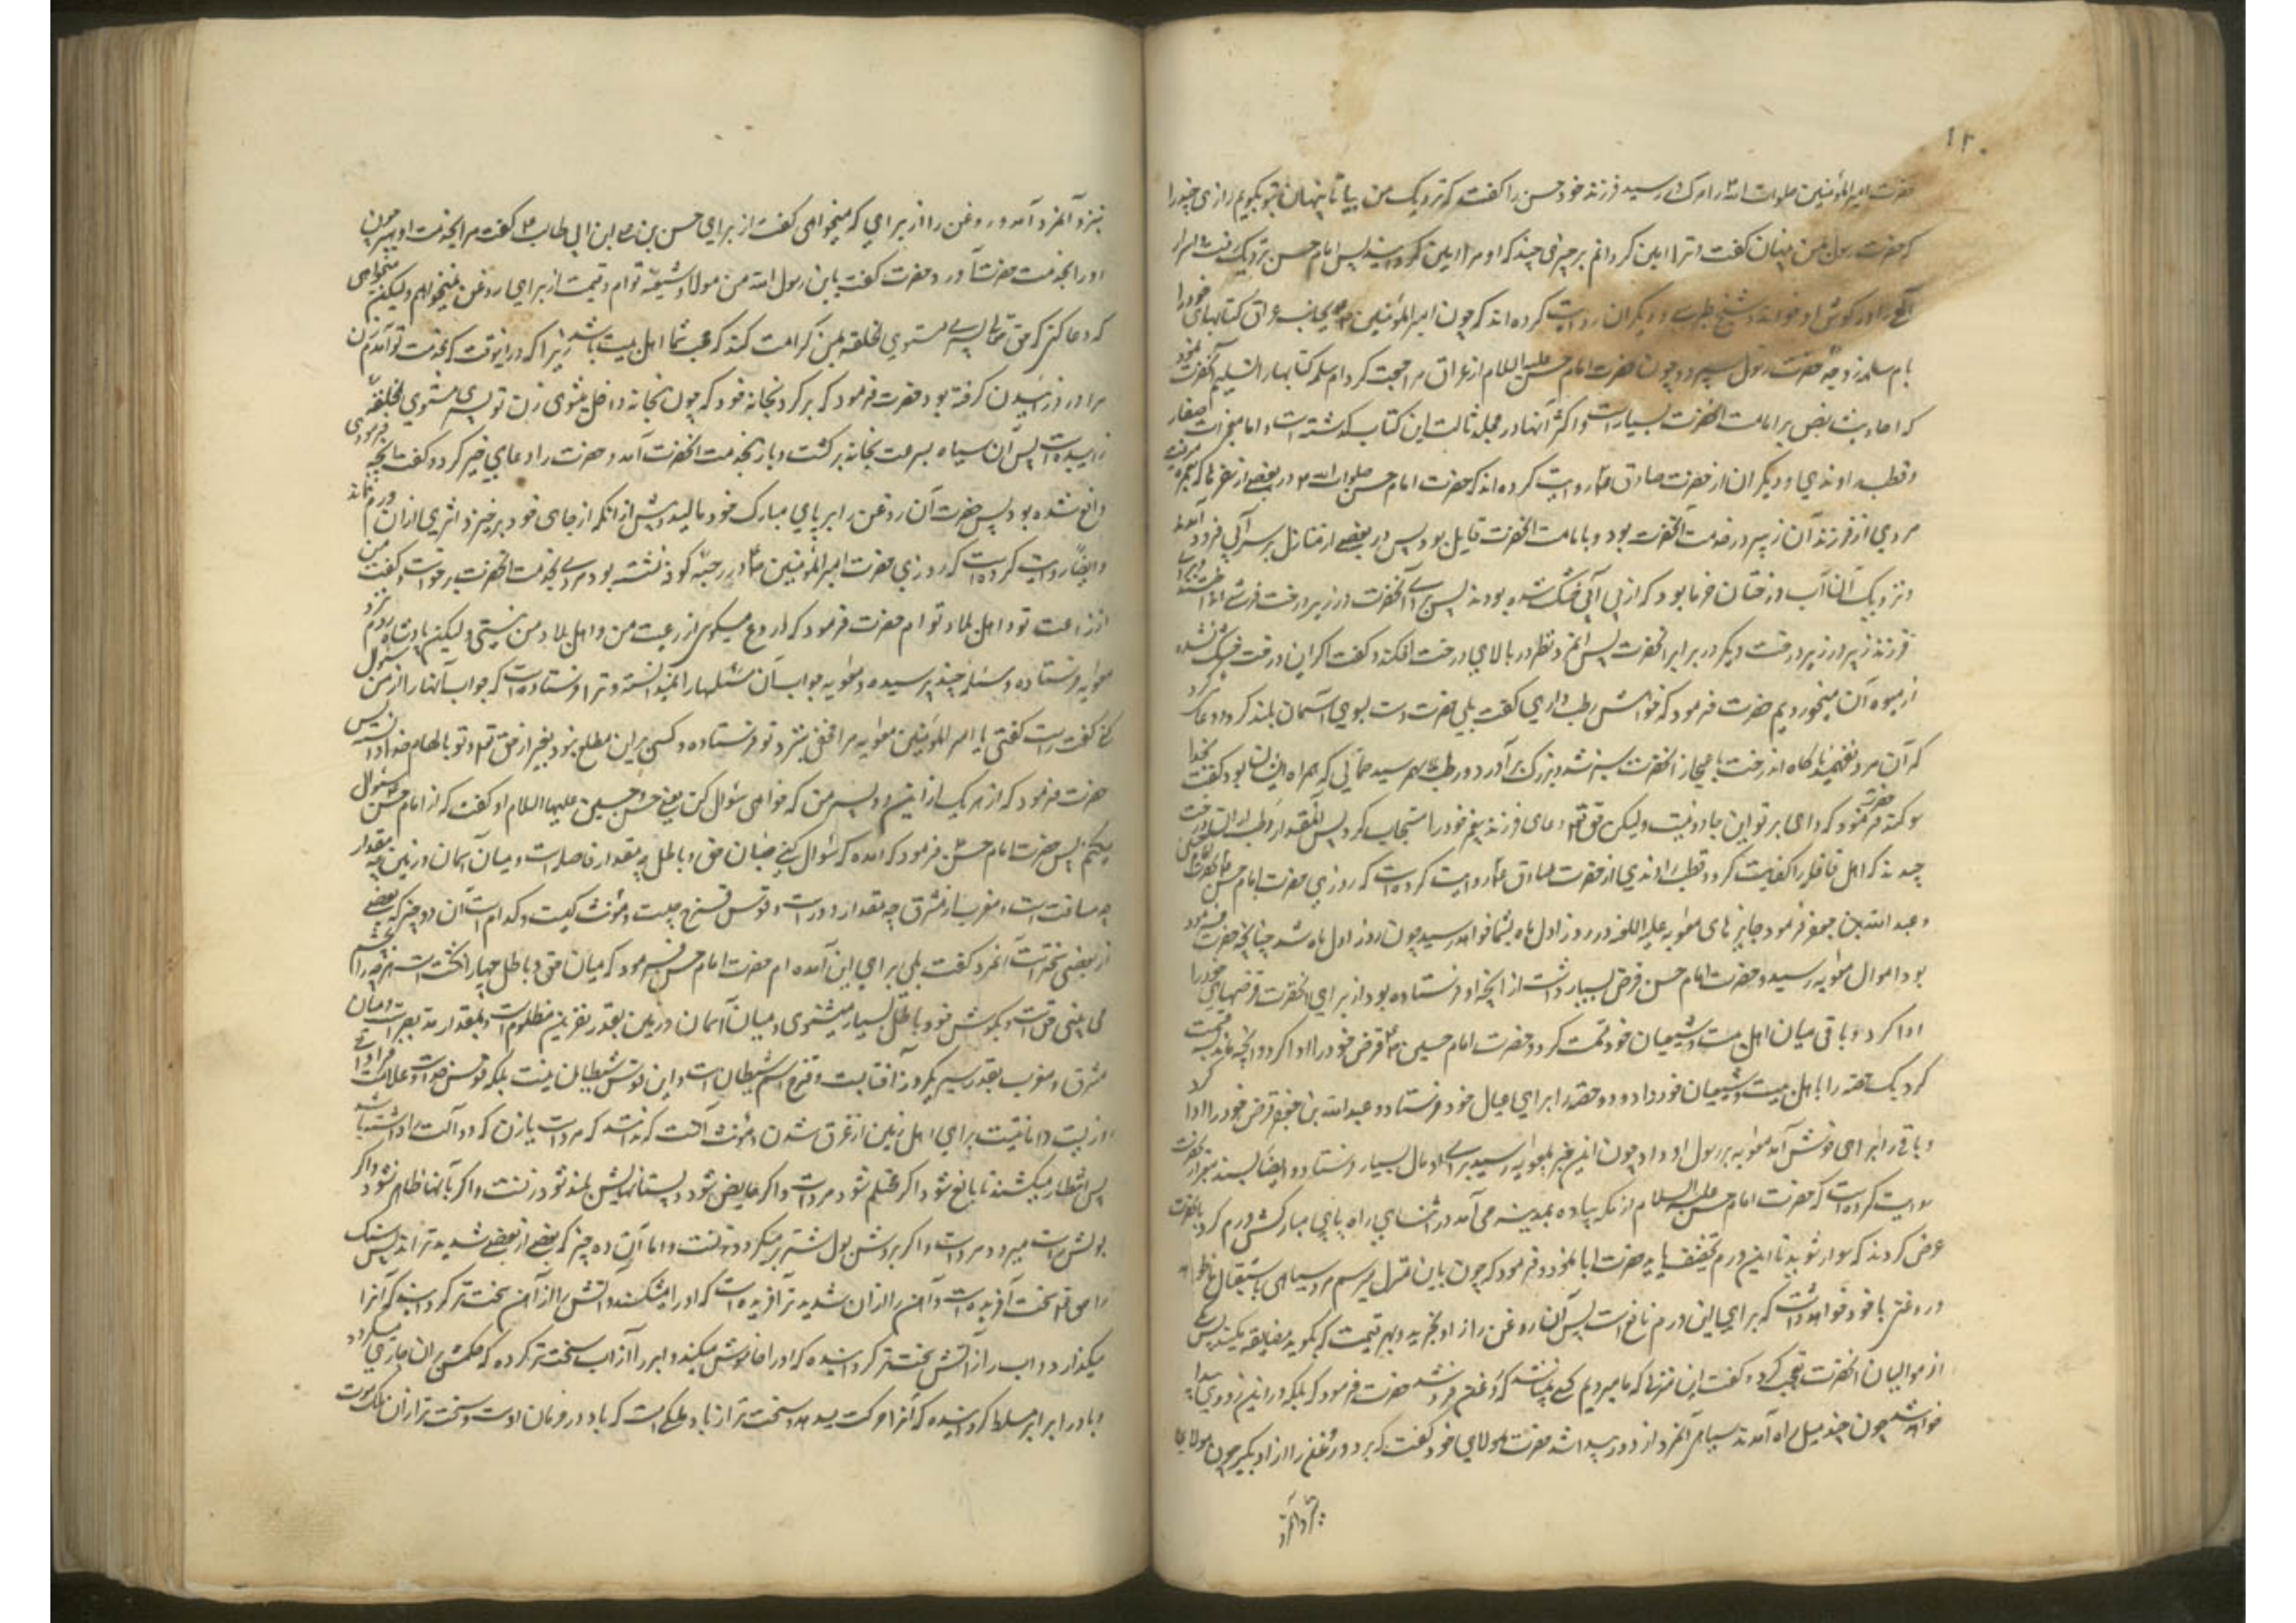 ۱۲۰
حضرت امیرالمؤمنین صلوات الله را مرک در رسید فرزند خود حسن را کفت که نزدیک من بیا تا پنهان بتو بکویم رازی چند را
که حضرت رسول بمن پنهان کفت و ترا امین کردانم بر چیزی چند که او مرا امین کردانید پس امام حسن نزدیک رفت اسرار
را در کوش او خواند و شیخ طبرسی و دیکران روایت کرده اند که چون امیرالمؤمنین بجانب عراق کتابهای خود را
بام سلمه زوجه حضرت رسول سپرد و چون حضرت امام حسن علیه السلام از عراق مراجعت کرد ام سلمه کتابها را تسلیم آنحضرت نمود
که احادیث نص بر امامت آنحضرت بسیار است و اکثر آنها در مجلد ثالث این کتاب کذشته است و اما معجزات صفار
و قطب راوندی و دیکران از حضرت صادق ع روایت کرده اند که حضرت امام حسن صلوات الله در بعضی از سفرها که
مردی از فرزندان زبیر در خدمت آنحضرت بود و بامامت آنحضرت قایل بود پس در بعضی از منازل بر سر آبی فرود آمدند
و نزدیک آن آب درختان خرما بود که از بی آبی خشک شده بودند پس برای آنحضرت در زیر درخت فرش انداختند
فرزند زبیر در زیر درخت دیکر در برابر آنحضرت پس آنمرد نظر در بالای درخت افکند و کفت اکر این درخت خشک نشده
از میوه آن میخوردیم حضرت فرمود که خواهش رطب داری کفت بلی حضرت دست بسوی آسمان بلند کرد و دعا کرد
که آن مرد نفهمید ناکاه آن درخت باعجاز آنحضرت سبز شد و برک برآورد و رطب بهم رسید جمالی که همراه ایشان بود کفت بخدا
سوکند حضرت فرمود که وای بر تو این جادو نیست ولیکن حق تع دعای فرزند پیغمبر خود را مستجاب کرد پس آنقدر رطب از آن درخت
چیدند که اهل قافله را کفایت کرد و قطب راوندی از حضرت صادق ع روایت کرده است که روزی حضرت امام حسن
و عبدالله بن جعفر فرمود جایزهای معویه علیه اللعنه در روز اول ماه بشما خواهد رسید چون روز اول ماه شد چنانچه حضرت فرموده
بود اموال معویه رسید و حضرت امام حسن قرض بسیار داشت از آنچه او فرستاده بود از برای آنحضرت قرضهای خود را
ادا کرد و باقی میان اهل بیت و شیعیان خود قسمت کرد و حضرت امام حسین ع قرض خود را ادا کرد و آنچه ماند قسمت
کرد یک حصه را باهل بیت و شیعیان خود داد و دو حصه را برای عیال خود فرستاد و عبدالله بن جعفر قرض خود را ادا کرد
و باقی را برای خوش آمد معویه برسول او داد چون این خبر بمعویه رسید برای او مال بسیار فرستاد و ایضا بسند معتبر از آنحضرت
روایت کرده است که حضرت امام حسن علیه السلام از مکه پیاده بمدینه می آمد در اثنای راه پای مبارکش ورم کرد بآنحضرت
عرض کردند که سوار شوید تا این ورم تخفیف یابد حضرت ابا نمود و فرمود که چون باین منزل میرسیم مرد سیاهی باستقبال ما
و روغنی با خود خواهد داشت که برای این ورم نافع است پس آن روغن را از او بخرید و بهر قیمت که بکوید مضایقه مکنید پس یکی
از موالیان آنحضرت تعجب کرد و کفت این منزلی که ما میرویم کسی نباشد که روغن فروشد حضرت فرمود که بلکه در این زودی پیدا
خواهد شد چون چند میل راه آمدند سیاهی آنمرد از دور پیدا شد حضرت بمولای خود کفت که برو و روغن را از او بکیر چون مولای ما
نزد آنمرد
نیزد آنمرد آمد و روغن را از برای که میخواهی کفت از برای حسن بن علی ابن ابی طالب ع کفت مرا بخدمت او ببر چون
او را بخدمت حضرت آورد حضرت کفت یا بن رسول الله من مولا و شیعه توام و قیمت از برای روغن نمیخواهم ولیکن میخواهم
که دعا کنی که حق تعالی پسری مستوی الخلقه بمن کرامت کند که محب شما اهل بیت باشد زیرا که در اینوقت که بخدمت تو آمدم زن
مرا درد زائیدن کرفته بود حضرت فرمود که برکرد بخانه خود که چون بخانه داخل میشوی زن تو پسری مستوی الخلقه
زاییده است پس آن سیاه بسرعت بخانه برکشت و باز بخدمت آنحضرت آمد و حضرت را دعای خیر کرد و کفت آنچه فرمودی
واقع شده بود پس حضرت آن روغن را بر پای مبارک خود مالید پیش از آنکه از جای خود برخیزد اثری از آن ورم نماند
و ایضا روایت کرده است که روزی حضرت امیرالمؤمنین ع در رحبه کوفه نشسته بود مردی بخدمت آنحضرت برخواست و کفت من
از رعیت تو و اهل بلاد توام حضرت فرمود که دروغ میکوئی از رعیت من و اهل بلاد من نیستی ولیکن پادشاه روم نزد
معویه فرستاده و مسئله چند پرسیده و معویه جواب آن مسئلهها را نمیدانسته و ترا فرستاده است که جواب آنها را از من سؤال
کنی کفت راست کفتی یا امیرالمؤمنین معویه مرا مخفی بنزد تو فرستاده و کسی بر این مطلع نبود بغیر از حق تع و تو بالهام خدا دانستی پس
حضرت فرمود که از هر یک از این دو پسر من که خواهی سؤال کن یعنی حسن و حسین علیهما السلام او کفت که از امام حسن سؤال
میکنم پس حضرت امام حسن فرمود که آمده که سؤال کنی میان حق و باطل چه مقدار فاصله است و میان آسمان و زمین چه مقدار
چه مسافت است و مغرب از مشرق چه مقدار دور است و قوس قزح چیست و مؤنث کیست و کدام است آن ده چیز که بعضی
از بعضی سختتر است آنمرد کفت بلی برای این آمده ام حضرت امام حسن فرمود که میان حق و باطل چهار انکشت است هر چه را بچشم
می بینی حق است و بکوش خود باطل بسیار میشنوی و میان آسمان و زمین بقدر نفرین مظلوم است و بمقدار مد بصر است و میان
مشرق و مغرب بقدر سیر یکروزه آفتابست و قزح اسم شیطان است و این قوس شیطان نیست بلکه قوس خداست و علامت فراوانی
از پست و امانیست برای اهل زمین از غرق شدن و مؤنث آنست که ندانند که مرد است یا زن که دو آلت داشته باشد
پس انتظار میکشند تا بالغ شود اکر محتلم شود مرد است و اکر حایض شود و پستانهایش بلند شود زنست و اکر باینها ظاهر نشود اکر
بولش راست میرود مرد است و اکر بروش بول شتر برمیکردد زنست و اما آن ده چیز که بعضی از بعضی شدیدتر اند پس سنک
را حق تع سخت آفریده است و آهن را از آن شدیدتر آفریده است که او را میشکند و آتش را از آهن سخت تر کردانید که آنرا
میکدازد و آب را از آتش سخت تر کردانیده که او را خاموش میکند و ابر را از آب سخت تر کرده که حکمش بر آن جاری میکردد
و باد را بر ابر مسلط کردانیده که آنرا حرکت میدهد و سخت تر از باد ملکی است که باد در فرمان اوست و سخت تر از آن ملک موت